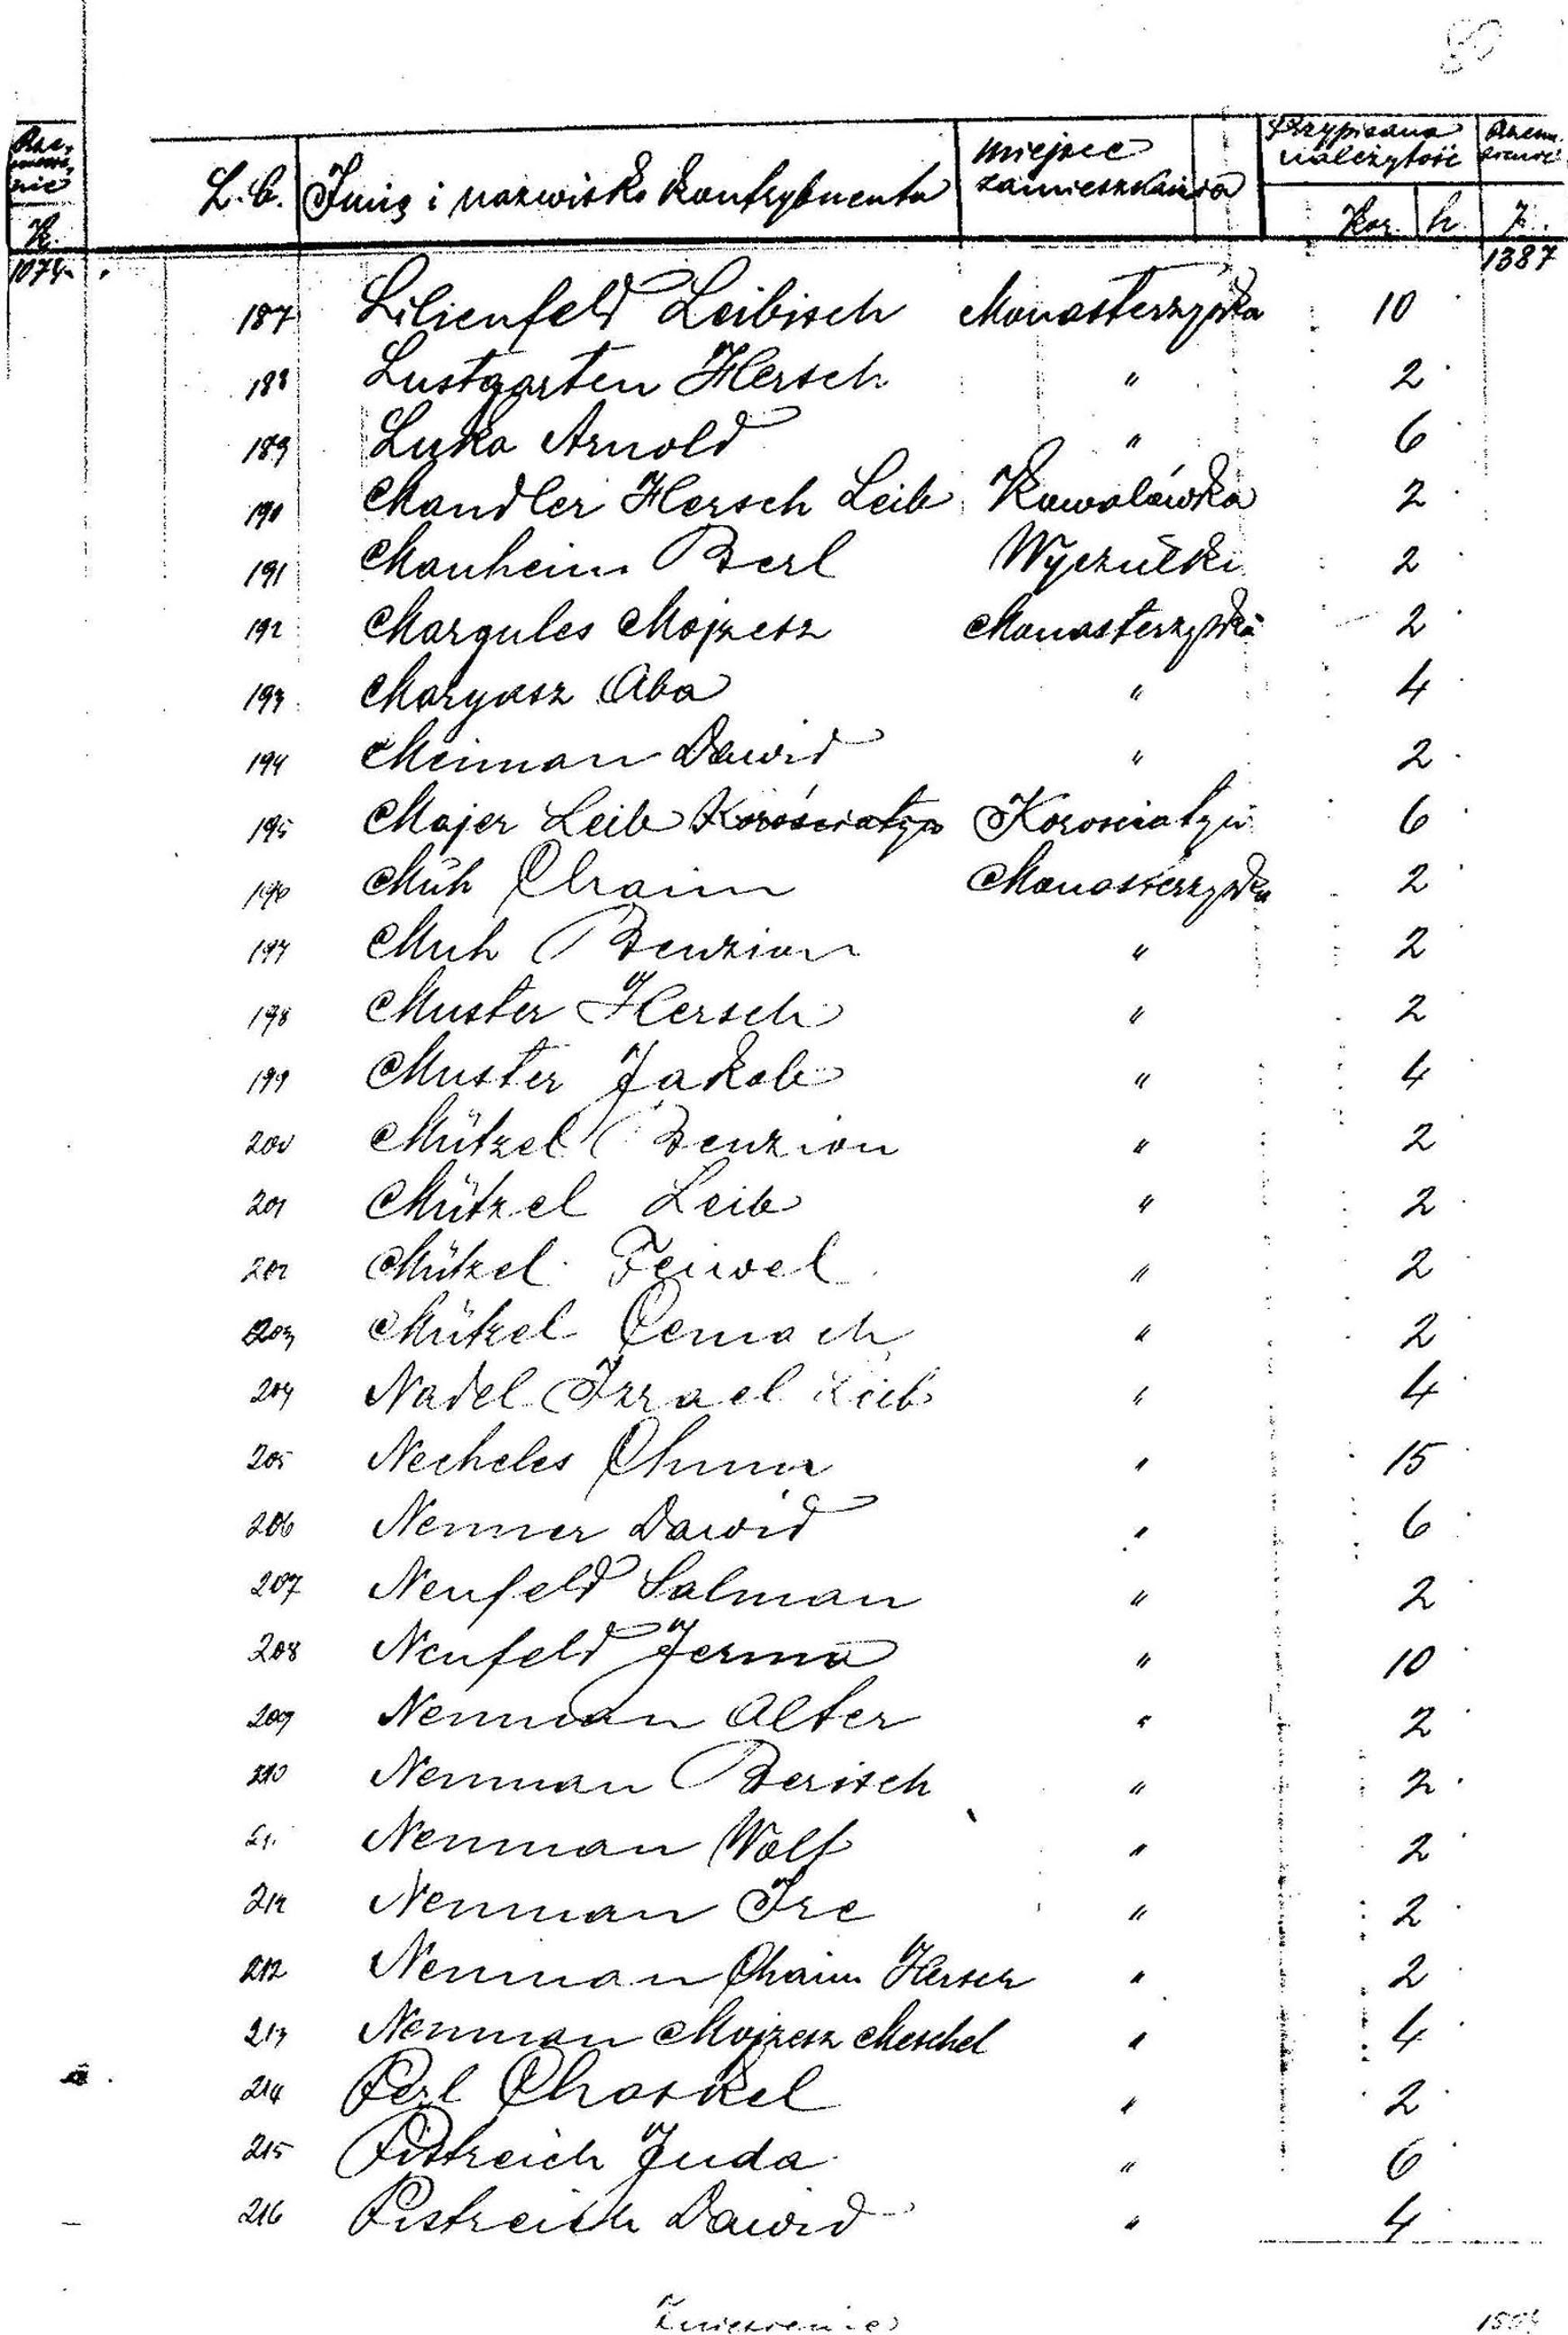 80
L.b. Imię i nazwisko kontrybuenta miejsce zamieszkania Przypisana należytość
K. Kor. h K.
1074 1387
187 Lilienfeld Leibisch Monasterzyska 10
188 Lustgarten Hersch " 2
189 Luka Arnold " 6
190 Mandler Hersch Leib Kowalówka 2
191 Manheim Berl Wyczułki 2
192 Margules Mojzesz Monasterzyska 2
193 Maryasz Aba " 4
194 Meiman Dawid " 2
195 Majer Leib Korościatyn Korosciatyn 6
196 Müh Chaim Monasterzyska 2
197 Muh Benzion " 2
198 Muster Hersch " 2
199 Muster Jakob " 4
200 Mützel Benzion " 2
201 Mützel Leib " 2
202 Mützel Feiwel " 2
203 Mützel Cemach " 2
204 Nadel Izrael Leib " 4
205 Necheles Chuna " 15
206 Nenner Dawid " 6
207 Neufeld Salman " 2
208 Neufeld Jerma " 10
209 Neuman Alter " 2
210 Neuman Berisch " 2
211 Neuman Wolf " 2
212 Neuman Ire " 2
212 Neuman Chaim Hersch " 2
213 Neuman Mojzesz Meschel " 4
214 Perl Chaskel " 2
215 Pistreich Juda " 6
216 Pistreich Dawid " 4
Zniesienie